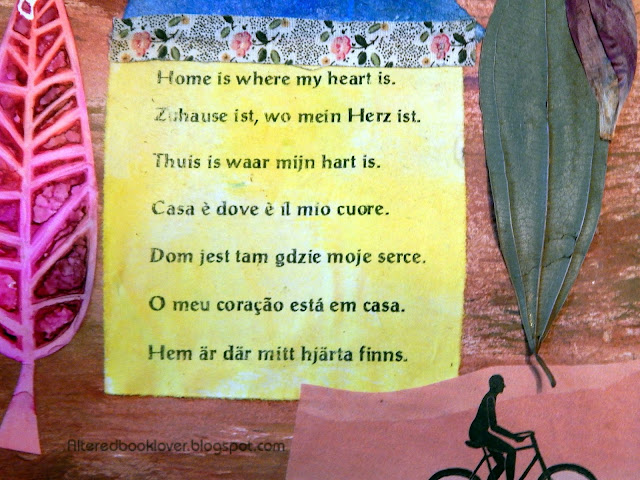 Home is where my heart is.
Zuhause ist, wo mein Herz ist.
Thuis is waar mijn hart is.
Casa è dove è il mio cuore.
Dom jest tam gdzie moje serce.
O meu coração está em casa.
Hem är där mitt hjärta finns.
Alteredbooklover.blogspot.com